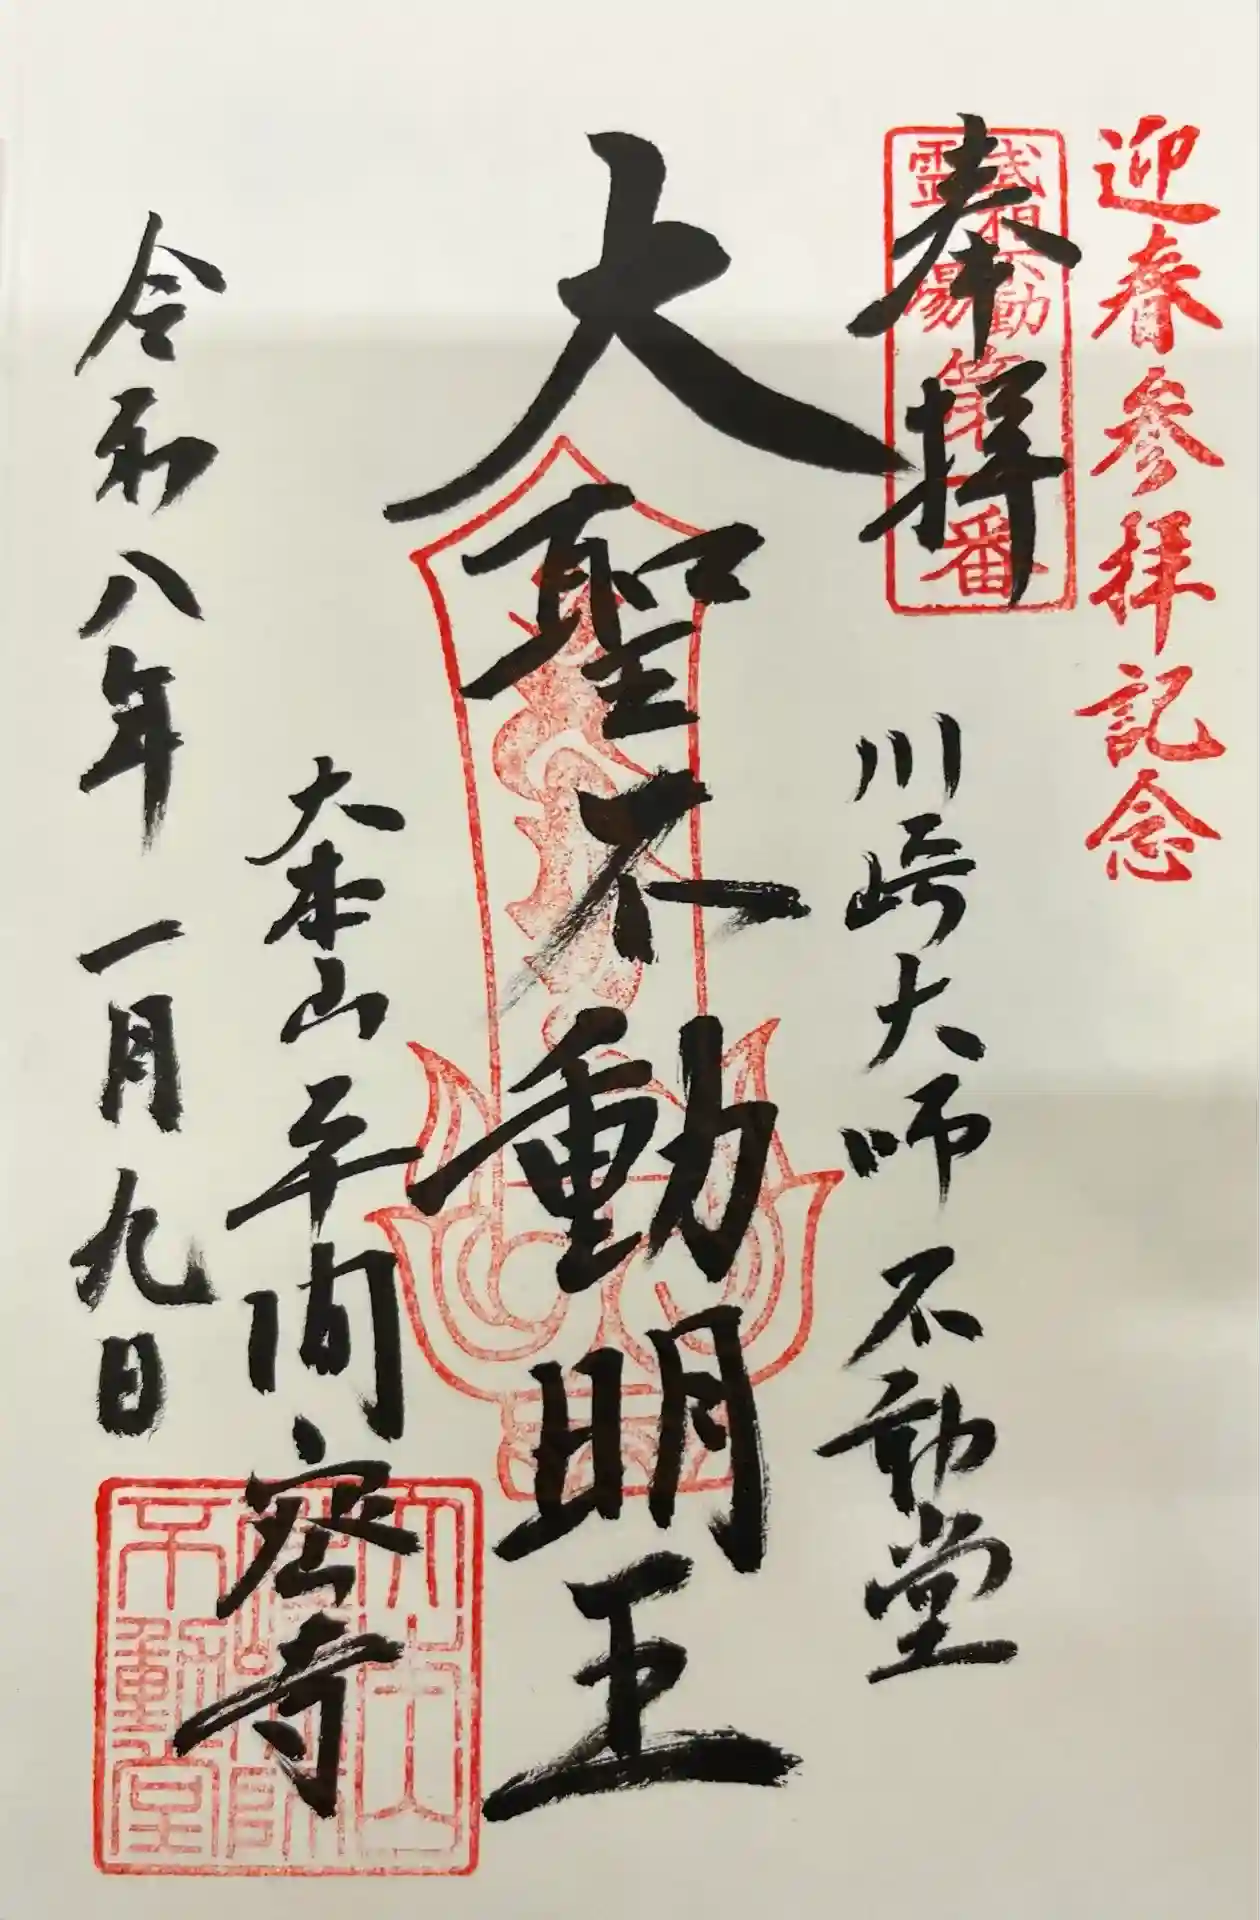 迎春参拝記念
奉拝
武相不動
霊場
第一番
川崎大師 不動堂
大聖不動明王
大本山 平間密寺
令和八年 一月九日
大本山
川崎大師
不動堂